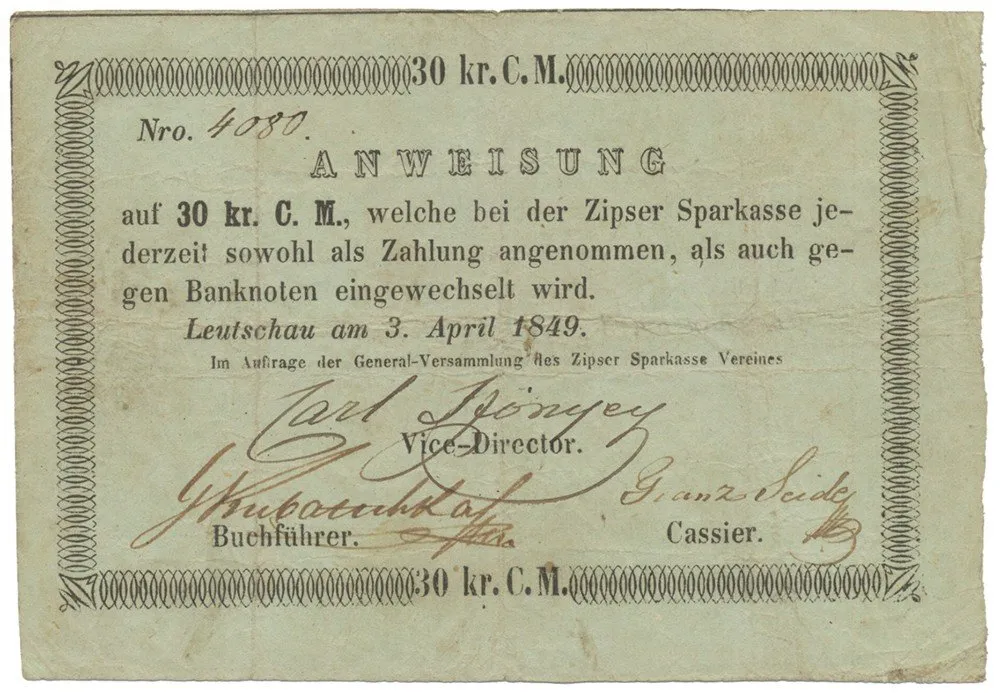 30 kr. C. M.
Nro. 4080.
ANWEISUNG
auf 30 kr. C. M., welche bei der Zipser Sparkasse je-
derzeit sowohl als Zahlung angenommen, als auch ge-
gen Banknoten eingewechselt wird.
Leutschau am 3. April 1849.
Im Auftrage der General-Versammlung des Zipser Sparkasse Vereines
Carl
Vice-Director.
Franz
Buchführer.
Cassier.
30 kr. C. M.